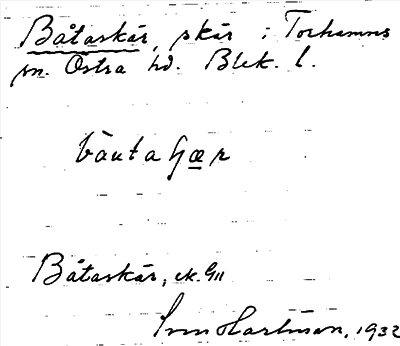 Båtaskär, skär i Torhamns
sn. Östra hd. Blek. l.
Båtaskär, ek. 9111
Sven Hartman, 1932